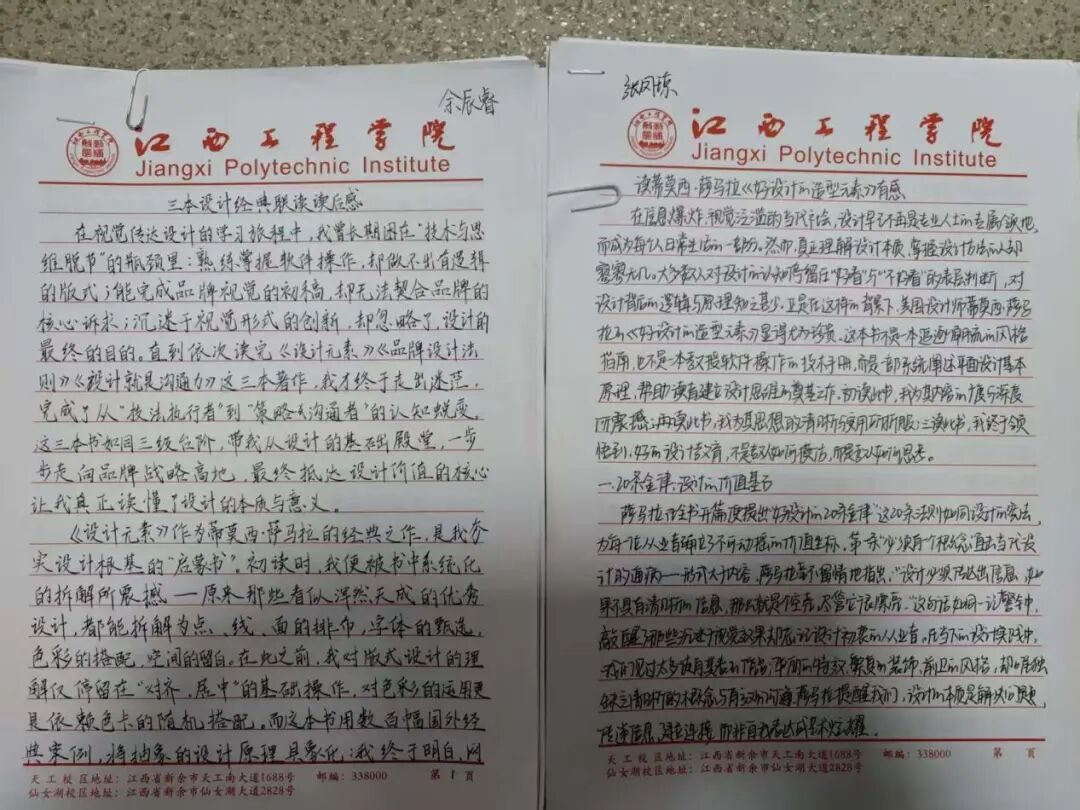 余辰睿
江西工程学院
Jiangxi Polytechnic Institute
三本设计经典联读读后感
在视觉传达设计的学习旅程中，我曾长期困在“技术与思
维脱节”的瓶颈里：熟练掌握软件操作，却做不出有逻辑
的版式；能完成品牌视觉的初稿，却无法契合品牌的
核心诉求；沉迷于视觉形式的创新，却忽略了设计的
最终的目的。直到依次读完《设计元素》《品牌设计法
则》《设计就是沟通力》这三本著作，我才终于走出迷茫，
完成了从“技法执行者”到“策略沟通者”的认知蜕变。
这三本书如同三级台阶，带我从设计的基础殿堂，一步
步走向品牌战略高地，最终抵达设计价值的核心
让我真正读懂了设计的本质与意义。
《设计元素》作为蒂莫西·萨马拉的经典之作，是我夯
实设计根基的“启蒙书”。初读时，我便被书中系统化
的拆解所震撼——原来那些看似浑然天成的优秀
设计，都能拆解为点、线、面的排布，字体的甄选，
色彩的搭配，空间的留白。在此之前，我对版式设计的理
解仅停留在“对齐，居中”的基础操作，对色彩的运用更
是依赖色卡的随机搭配。而这本书用数百幅国外经
典案例，将抽象的设计原理具象化：我终于明白，网
天工校区地址：江西省新余市天工南大道1688号 邮编：338000 第1页
仙女湖校区地址：江西省新余市仙女湖大道2828号
张凤琼
江西工程学院
Jiangxi Polytechnic Institute
读蒂莫西·萨马拉《好设计的造型元素》有感
在信息爆炸视觉泛滥的当代社会，设计早已不再是专业人士的专属领地，
而成为每个人日常生活的一部分。然而，真正理解设计本质，掌握设计方法的人却
寥寥无几。大多数人对设计的认知停留在“好看”与“不好看”的表层判断，对
设计背后的逻辑与原理知之甚少。正是在这样的背景下，美国设计师蒂莫西·萨马
拉的《好设计的造型元素》显得尤为珍贵。这本书不是一本追逐潮流的风格
指南，也不是一本教授软件操作的技术手册，而是一部系统阐述平面设计基本
原理，帮助读者建立设计思维的奠基之作。初读此书，我为其内容的广度与深度
所震撼；再读此书，我为其思想的清晰与实用所折服；三读此书，我终于领
悟到，好的设计教育，不是教人如何模仿，而是教人如何思考。
一.20条金律：设计的价值基石
萨马拉在全书开篇便提出好设计的20条金律“这20条法则如同设计的宪法，
为每一位从业者确立了不可动摇的价值坐标。第一条“必须有个概念”直击当代设
计的通病——形式大于内容，萨马拉毫不留情地指出，“设计必须传达出信息，如
果不具有清晰的信息，那么就是个空壳，尽管它很漂亮。”这句话如同一记警钟，
敲醒了那些沉迷于视觉效果却忘记设计初衷的从业者。在当下的设计实践中，
我们见过太多徒有其表的作品，华丽的特效，繁复的装饰，前卫的风格，却唯独
缺乏清晰的概念与有效的沟通。萨马拉提醒我们，设计的本质是解决问题
传递信息，建立连接，而非自我表达或艺术炫耀。
天工校区地址：江西省新余市天工南大道1688号 邮编：338000 第 页
仙女湖校区地址：江西省新余市仙女湖大道2828号